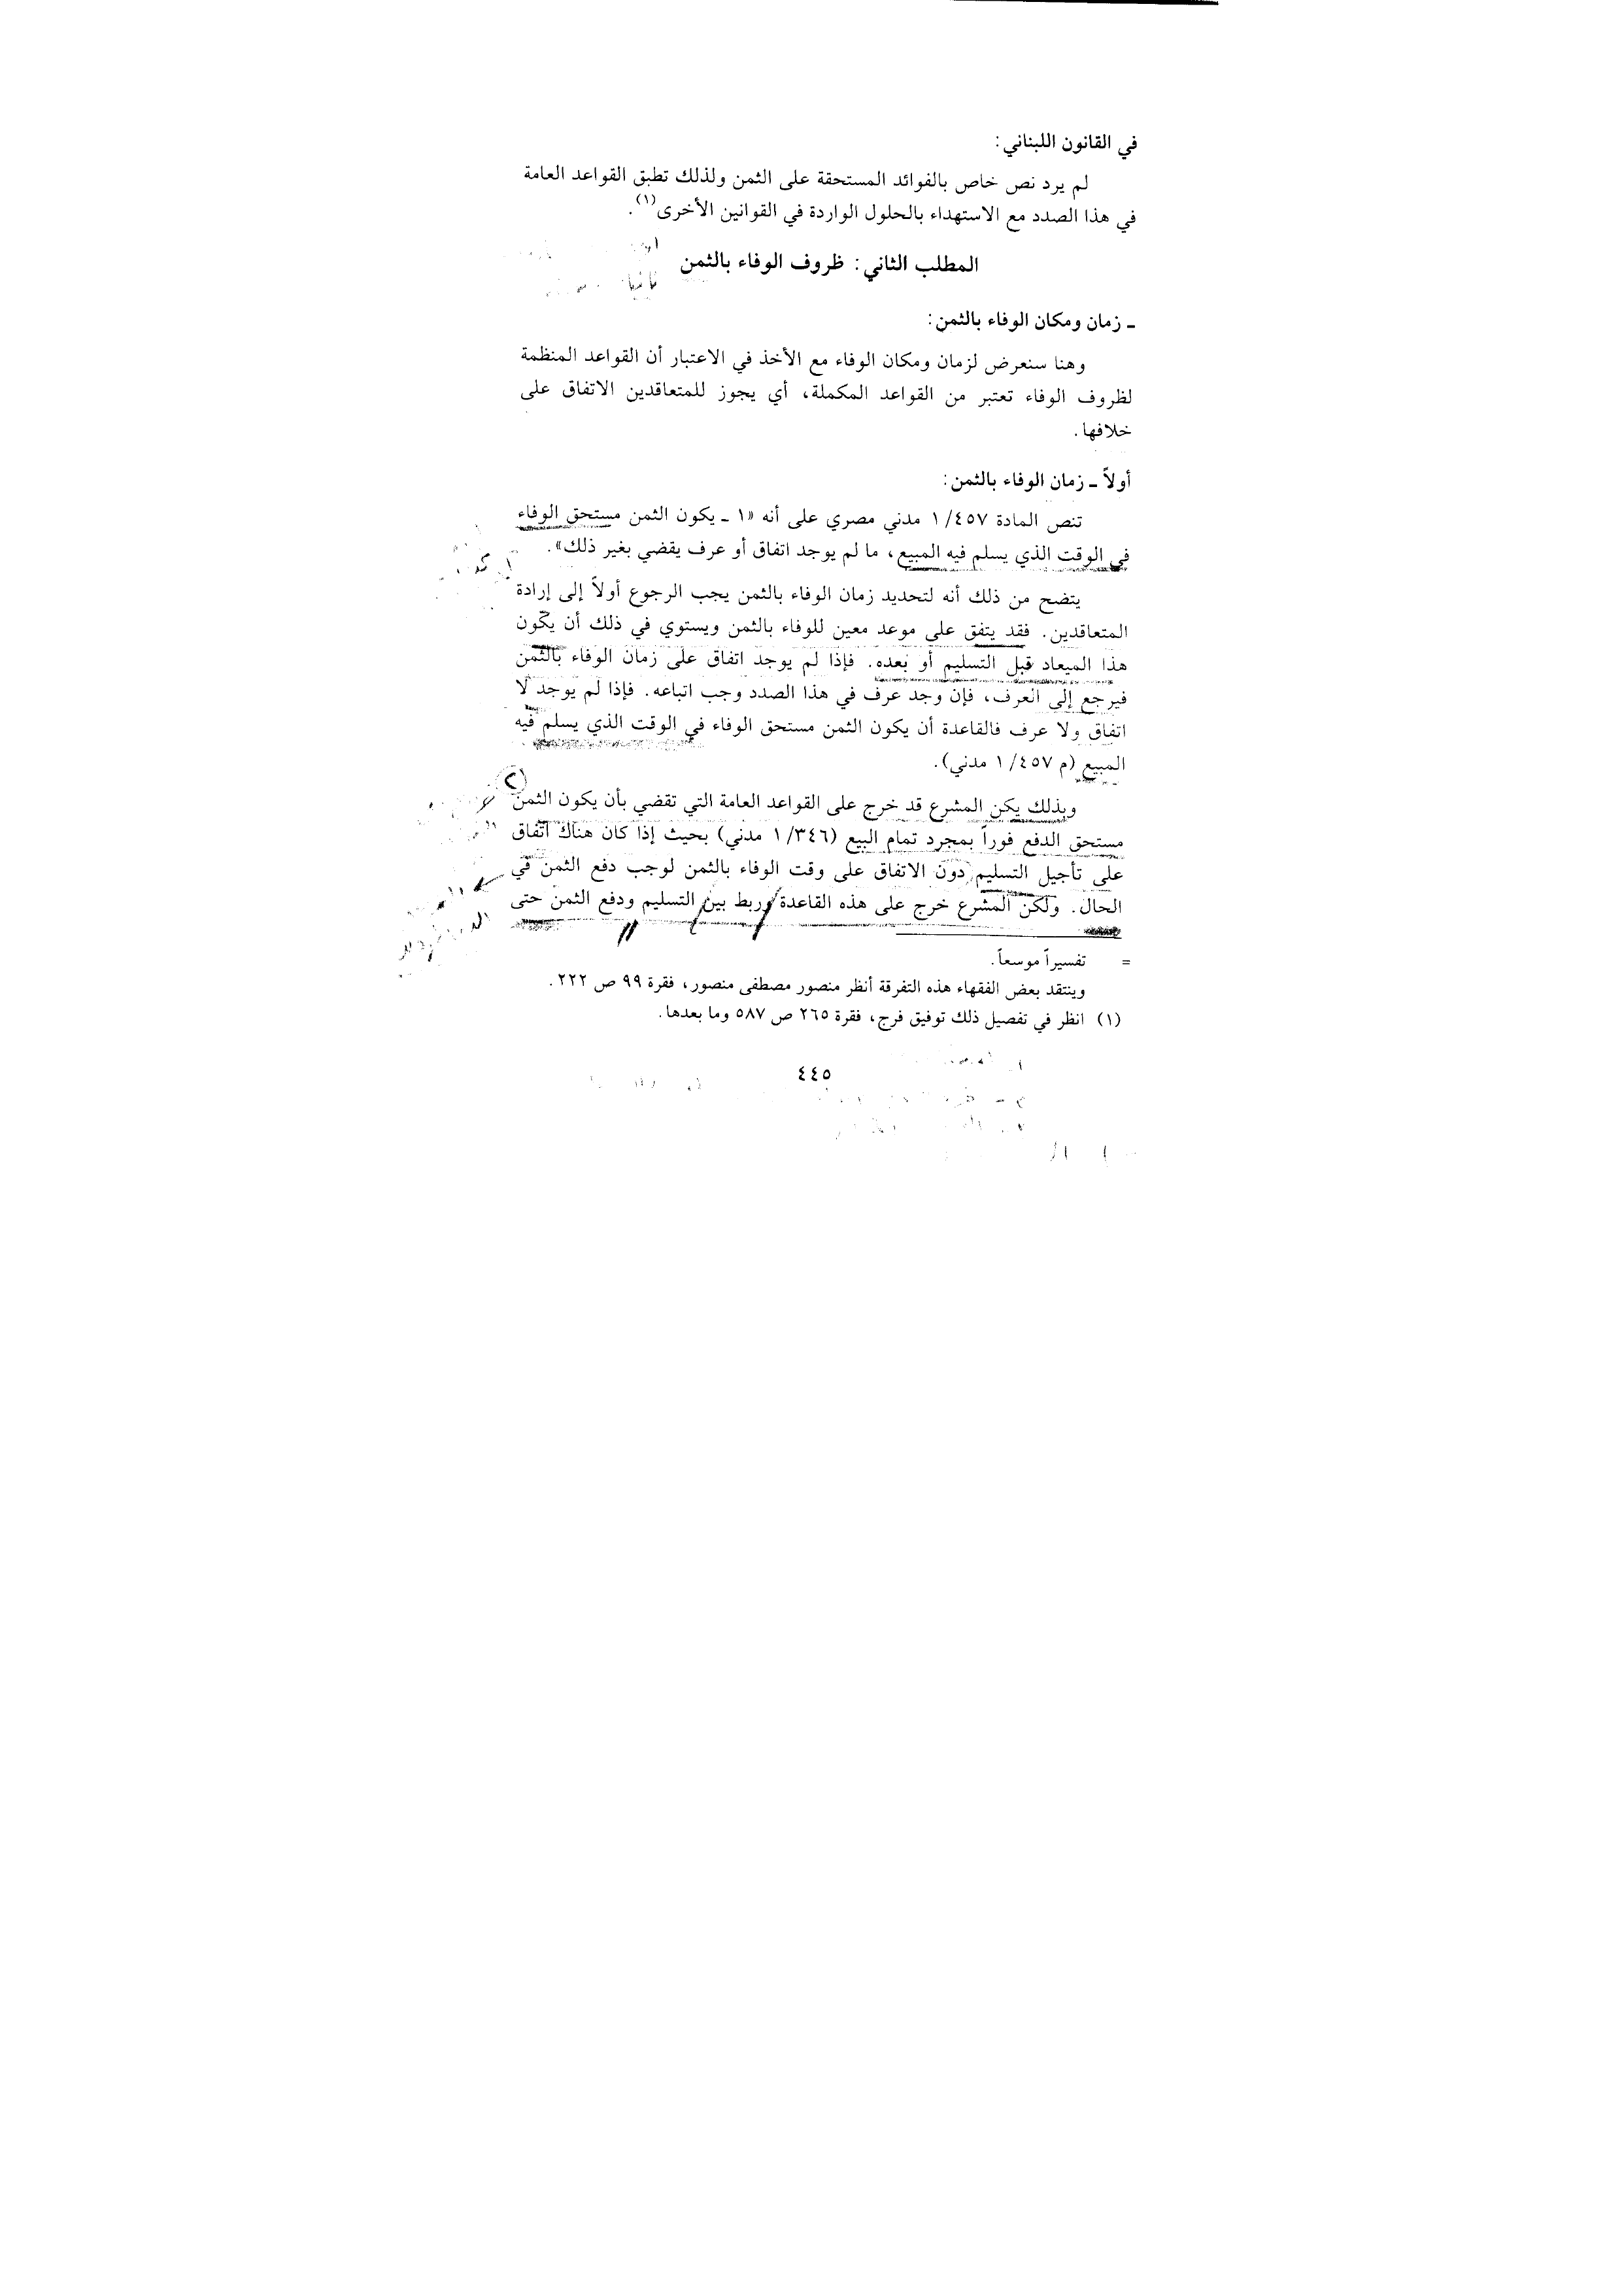 في القانون اللبناني:
لم يرد نص خاص بالفوائد المستحقة على الثمن ولذلك تطبق القواعد العامة
في هذا الصدد مع الاستهداء بالحلول الواردة في القوانين الأخرى(١).
المطلب الثاني: ظروف الوفاء بالثمن
ـ زمان ومكان الوفاء بالثمن:
وهنا سنعرض لزمان ومكان الوفاء مع الأخذ في الاعتبار أن القواعد المنظمة
لظروف الوفاء تعتبر من القواعد المكملة، أي يجوز للمتعاقدين الاتفاق على
خلافها.
أولاً ـ زمان الوفاء بالثمن:
تنص المادة ٤٥٧/ ١ مدني مصري على أنه «١ ـ يكون الثمن مستحق الوفاء
في الوقت الذي يسلم فيه المبيع، ما لم يوجد اتفاق أو عرف يقضي بغير ذلك».
يتضح من ذلك أنه لتحديد زمان الوفاء بالثمن يجب الرجوع أولاً إلى إرادة
المتعاقدين. فقد يتفق على موعد معين للوفاء بالثمن ويستوي في ذلك أن يكون
هذا الميعاد قبل التسليم أو بعده. فإذا لم يوجد اتفاق على زمان الوفاء بالثمن
فيرجع إلى العرف، فإن وجد عرف في هذا الصدد وجب اتباعه. فإذا لم يوجد لا
اتفاق ولا عرف فالقاعدة أن يكون الثمن مستحق الوفاء في الوقت الذي يسلم فيه
المبيع (م ٤٥٧/ ١ مدني).
وبذلك يكن المشرع قد خرج على القواعد العامة التي تقضي بأن يكون الثمن
مستحق الدفع فوراً بمجرد تمام البيع (٣٤٦/ ١ مدني) بحيث إذا كان هناك اتفاق
على تأجيل التسليم دون الاتفاق على وقت الوفاء بالثمن لوجب دفع الثمن في
الحال. ولكن المشرع خرج على هذه القاعدة وربط بين التسليم ودفع الثمن حتى
= تفسيراً موسعاً.
وينتقد بعض الفقهاء هذه التفرقة أنظر منصور مصطفى منصور، فقرة ٩٩ ص ٢٢٢.
(١) انظر في تفصيل ذلك توفيق فرج، فقرة ٢٦٥ ص ٥٨٧ وما بعدها.
٤٤٥